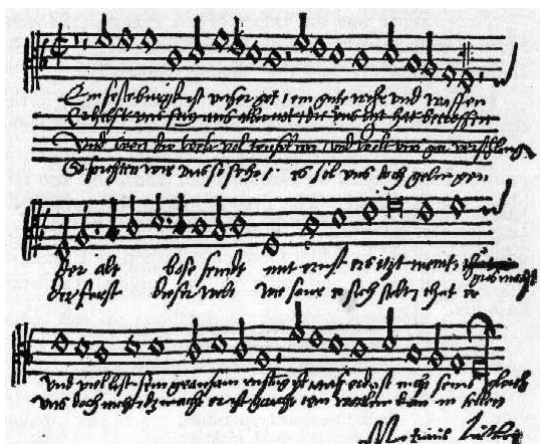 Ein feste burgk ist unser got / ein gute wehr und waffen
Er hilfft uns frey aus aller not / die uns itzt hat betroffen
Und wenn die welt vol teuffel wer / und wolt uns gar verschlingen
So furchten wir uns so sehr / es sol uns doch gelingen
der alt bose feindt mit ernst ers itzt meint
gros macht
der furst dieser welt wie saur er sich stelt that er
und viel list sein grausam rustung ist auff erd ist nicht seins gleich
uns doch nicht macht er ist gericht ein wortlin kan in fellen
Martinus Luther